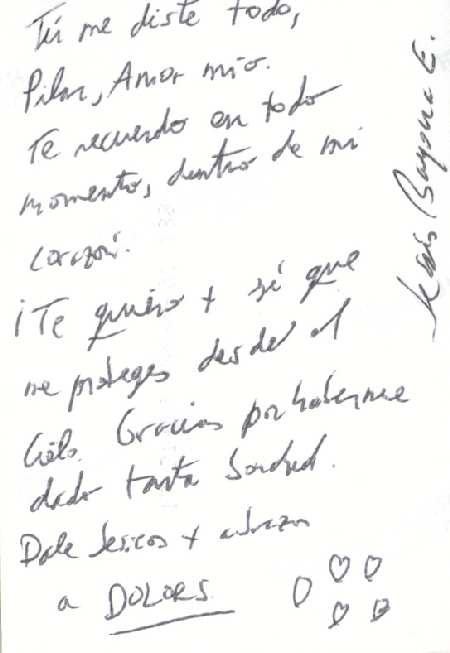 Tú me diste todo,
Pilar, Amor mío.
Te recuerdo en todo
momento, dentro de mi
corazón.
¡Te quiero + sé que
me proteges desde el
Cielo. Gracias por haberme
dado tanta bondad.
Dale besicos + abrazos
a DOLORS
Bayona E.